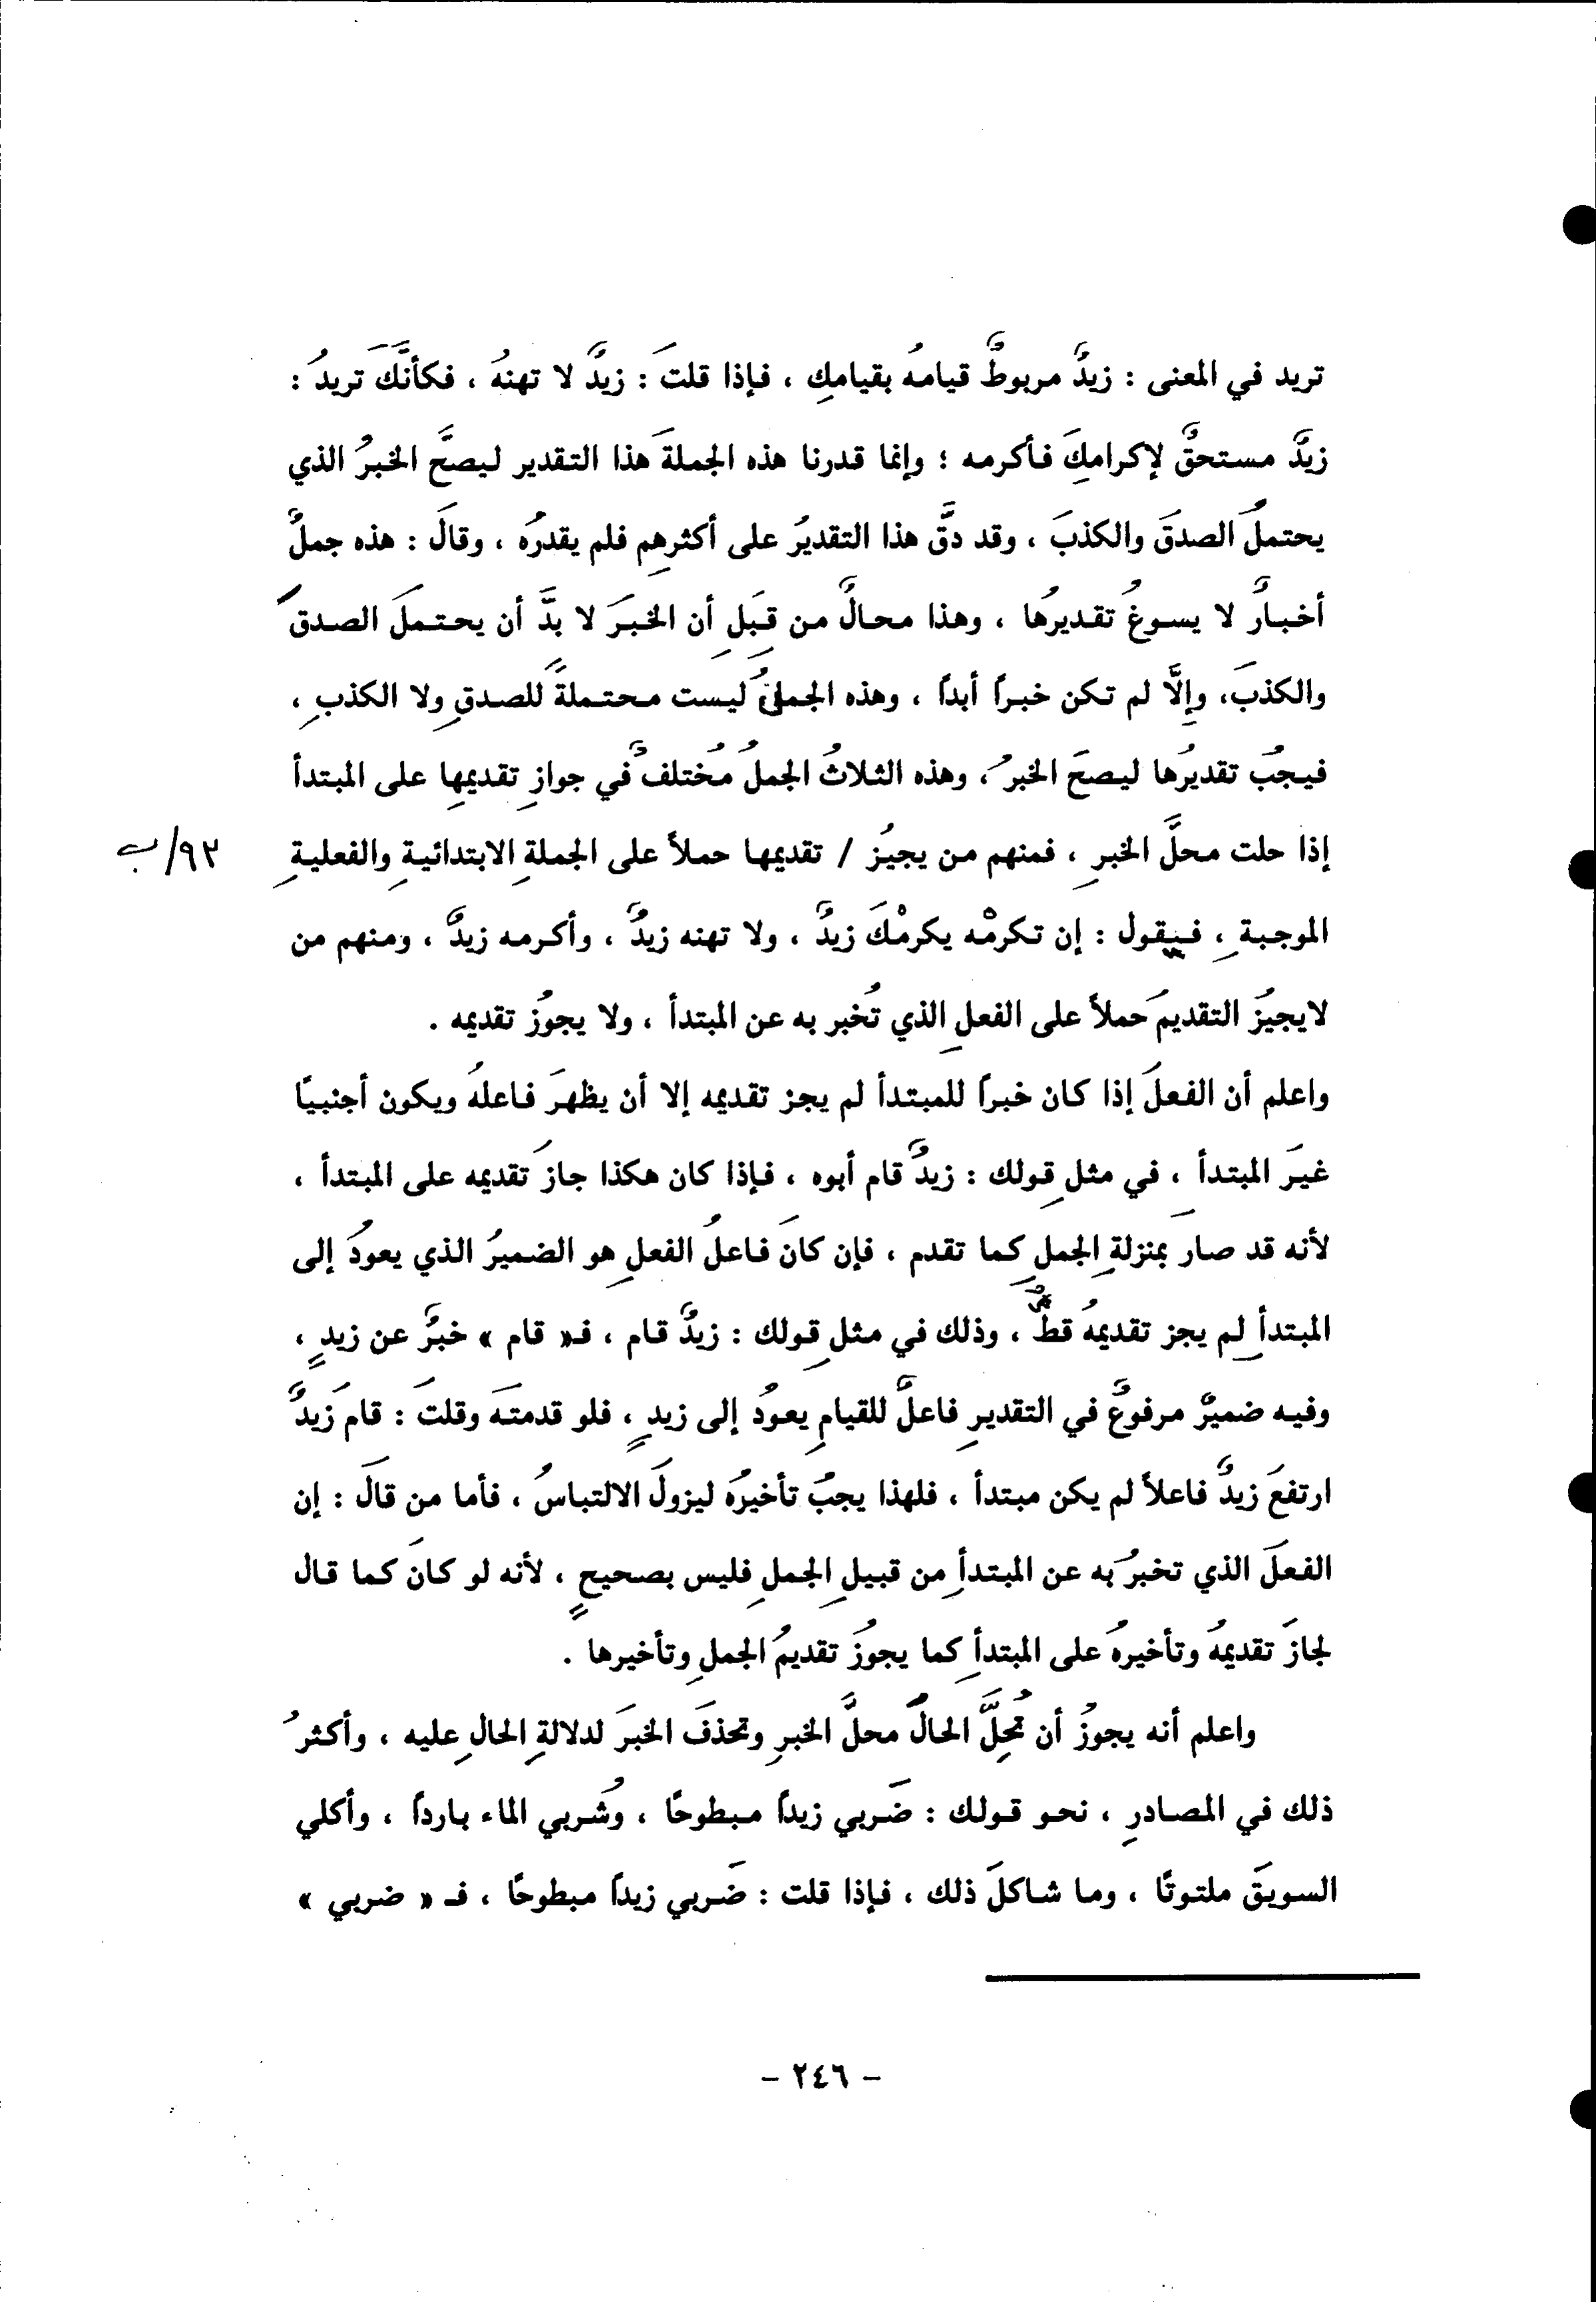 تريد في المعنى : زيدٌ مربوطٌ قيامهُ بقيامكِ ، فإذا قلتَ : زيدٌ لا تهنهُ ، فكأنَّكَ تريدُ :
زيدٌ مستحقٌ لإكرامكَ فأكرمه ؛ وإنما قدرنا هذه الجملةَ هذا التقدير ليصحَّ الخبرُ الذي
يحتملُ الصدقَ والكذبَ ، وقد دقَّ هذا التقديرُ على أكثرهِم فلم يقدرُه ، وقالَ : هذه جملٌ
أخبارٌ لا يسوغُ تقديرُها ، وهذا محالٌ من قِبَلِ أن الخبرَ لا بدَّ أن يحتملَ الصدقَ
والكذبَ، وإلَّا لم تكن خبراً أبداً ، وهذه الجملُ ليست محتملةً للصدقِ ولا الكذبِ ،
فيجبُ تقديرُها ليصحَ الخبرُ ، وهذه الثلاثُ الجملُ مُختلفٌ في جوازِ تقديمِها على المبتدأ
إذا حلت محلَّ الخبرِ ، فمنهم من يجيزُ / تقديمها حملاً على الجملةِ الابتدائيةِ والفعليةِ
٩٢/ب
الموجبةِ ، فيقول : إن تكرمْه يكرمْكَ زيدٌ ، ولا تهنه زيدٌ ، وأكرمه زيدٌ ، ومنهم من
لايجيزُ التقديمَ حملاً على الفعلِ الذي تُخبر به عن المبتدأ ، ولا يجوزُ تقديمه .
واعلم أن الفعلَ إذا كان خبراً للمبتدأ لم يجز تقديمه إلا أن يظهرَ فاعلهُ ويكون أجنبيًا
غيرَ المبتدأ ، في مثلِ قولك : زيدٌ قام أبوه ، فإذا كان هكذا جازَ تقديمه على المبتدأ ،
لأنه قد صارَ بمنزلةِ الجملِ كما تقدم ، فإن كانَ فاعلُ الفعلِ هو الضميرُ الذي يعودُ إلى
المبتدأِ لم يجز تقديمهُ قطُّ ، وذلك في مثلِ قولك : زيدٌ قام ، فـ« قام » خبرٌ عن زيدٍ ،
وفيه ضميرٌ مرفوعٌ في التقديرِ فاعلٌ للقيامِ يعودُ إلى زيدٍ ، فلو قدمتَه وقلتَ : قامَ زيدٌ
ارتفعَ زيدٌ فاعلاً لم يكن مبتدأ ، فلهذا يجبُ تأخيرُه ليزولَ الالتباسُ ، فأما من قالَ : إن
الفعلَ الذي تخبرُ به عن المبتدأِ من قبيلِ الجملِ فليس بصحيحٍ ، لأنه لو كانَ كما قال
لجازَ تقديمهُ وتأخيرهُ على المبتدأِ كما يجوزُ تقديمُ الجملِ وتأخيرها .
واعلم أنه يجوزُ أن تُحِلَّ الحالَ محلَّ الخبرِ وتحذفَ الخبرَ لدلالةِ الحالِ عليه ، وأكثرُ
ذلك في المصادرِ ، نحو قولك : ضَربي زيداً مبطوحًا ، وشُربي الماء بارداً ، وأكلي
السويقَ ملتوتًا ، وما شاكلَ ذلك ، فإذا قلت : ضَربي زيداً مبطوحًا ، فـ « ضربي »
- ٢٤٦ -